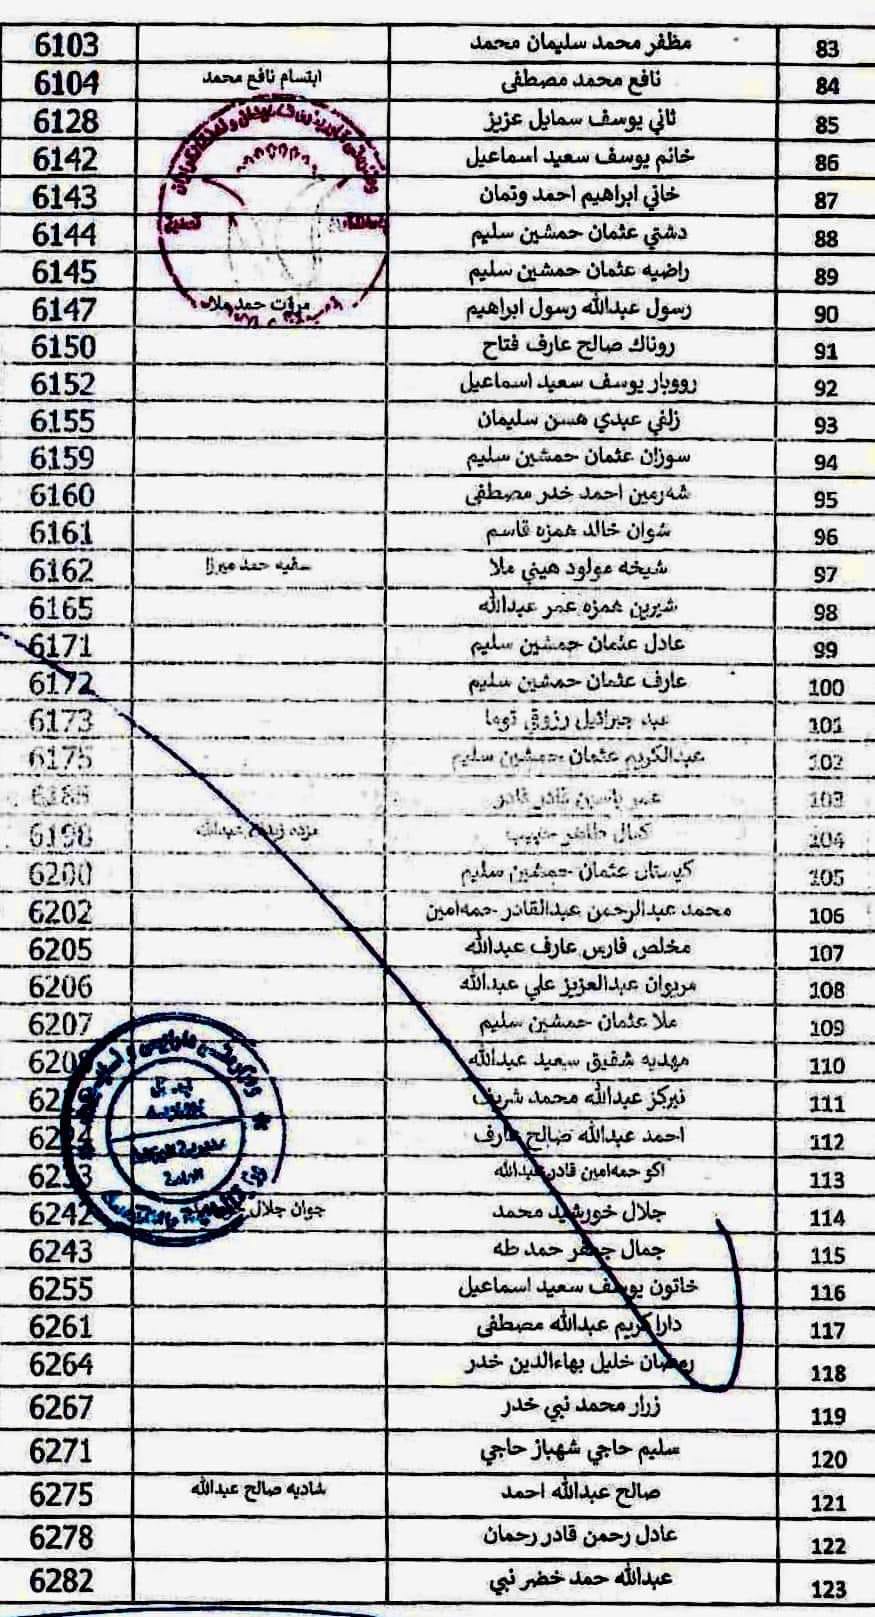 83 مظفر محمد سليمان محمد 6103
84 نافع محمد مصطفى ابتسام نافع محمد 6104
85 ثاني يوسف سمايل عزيز 6128
86 خانم يوسف سعيد اسماعيل 6142
87 خاني ابراهيم احمد وتمان 6143
88 دشتي عثمان حمشين سليم 6144
89 راضيه عثمان حمشين سليم 6145
90 رسول عبدالله رسول ابراهيم مروت حمد ملا 6147
91 روناك صالح عارف فتاح 6150
92 رووبار يوسف سعيد اسماعيل 6152
93 زلفي عبدي هسن سليمان 6155
94 سوزان عثمان حمشين سليم 6159
95 شەرمين احمد خدر مصطفى 6160
96 شوان خالد همزه قاسم 6161
97 شيخه مولود هيني ملا سفيه حمد ميرزا 6162
98 شيرين همزه عمر عبدالله 6165
99 عادل عثمان حمشين سليم 6171
100 عارف عثمان حمشين سليم 6172
101 عبد جبرائيل رزوقي توما 6173
102 عبدالكريم عثمان حمشين سليم 6175
103 عمر ياسين قادر قادر
104 كمال طاهر حبيب عبدالله 6198
105 كيستان عثمان حمشين سليم 6200
106 محمد عبدالرحمن عبدالقادر حمەامين 6202
107 مخلص فارس عارف عبدالله 6205
108 مريوان عبدالعزيز علي عبدالله 6206
109 ملا عثمان حمشين سليم 6207
110 مهديه شفيق سعيد عبدالله
111 نيركز عبدالله محمد شريف
112 احمد عبدالله صالح عارف
113 اكو حمەامين قادر عبدالله 6233
114 جلال خورشيد محمد جوان جلال 6242
115 جمال جعفر حمد طه 6243
116 خاتون يوسف سعيد اسماعيل 6255
117 دارا كريم عبدالله مصطفى 6261
118 رمضان خليل بهاءالدين خدر 6264
119 زرار محمد نبي خدر 6267
120 سليم حاجي شهباز حاجي 6271
121 صالح عبدالله احمد شاديه صالح عبدالله 6275
122 عادل رحمن قادر رحمان 6278
123 عبدالله حمد خضر نبي 6282